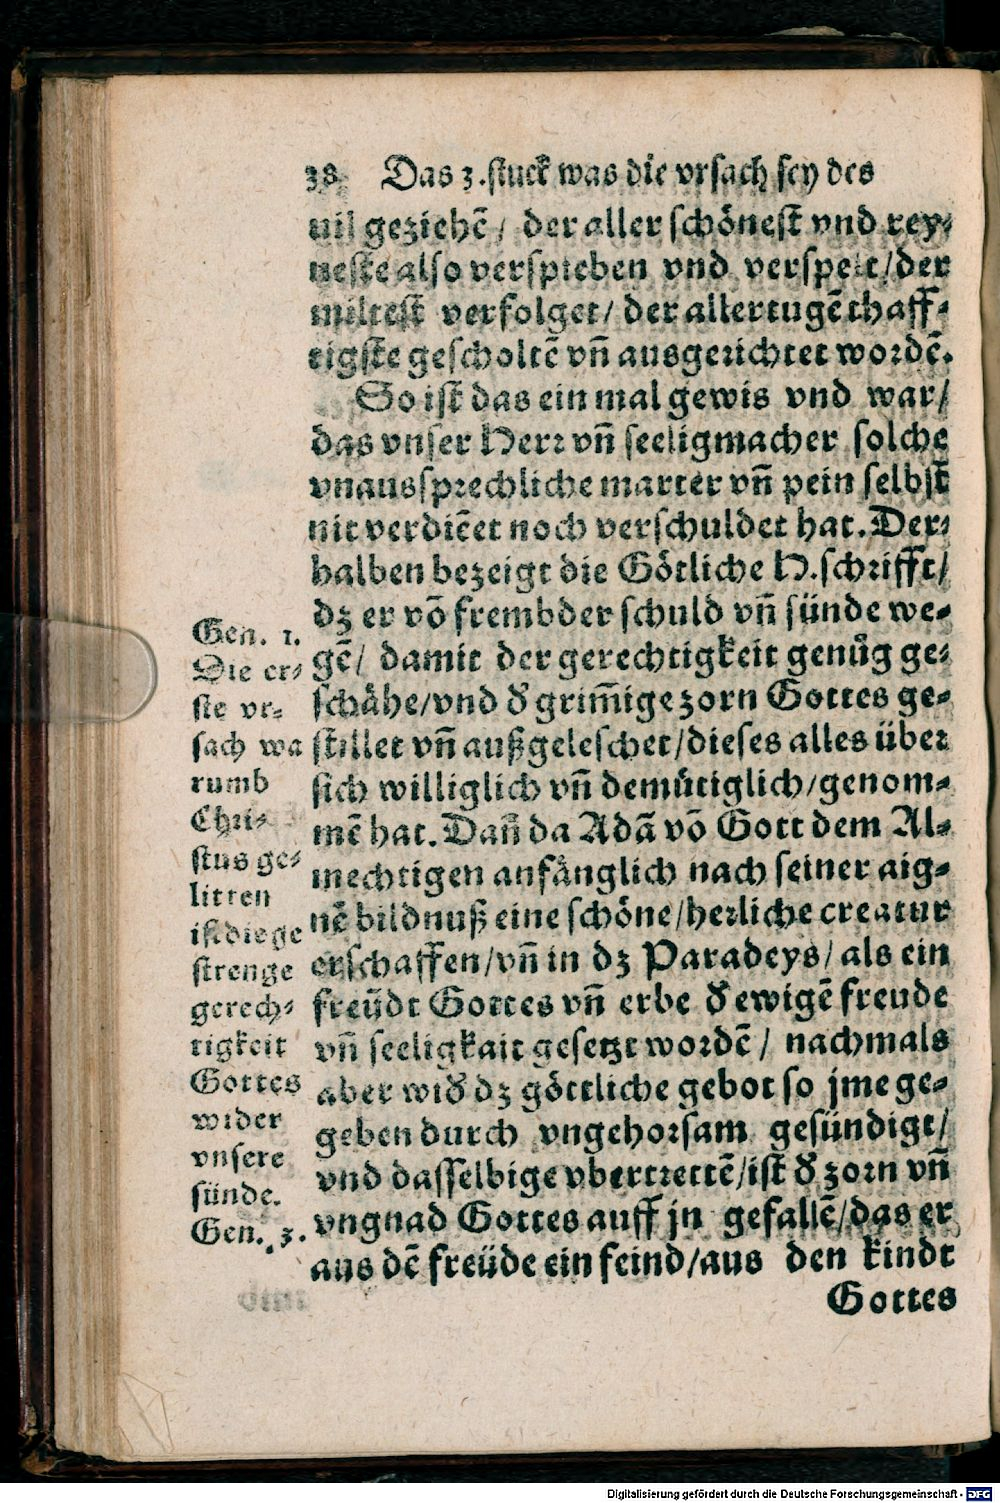 38. Das 3. stuck was die vrsach sey des
uil geziehẽ / der aller schönest vnd rey⸗
neste also verspieben vnd verspeit / der
miltest verfolget / der allertugẽthaff⸗
tigste gescholtẽ vñ ausgerichtet wordẽ.
So ist das ein mal gewis vnd war /
das vnser Herr vñ seeligmacher solche
vnaussprechliche marter vñ pein selbst
nit verdiẽet noch verschuldet hat. Der⸗
halben bezeigt die Götliche H. schrifft /
dz er võ frembder schuld vñ sünde we⸗
gẽ / damit der gerechtigkeit genůg ge⸗
schähe / vnd d̕ grim̃ige zorn Gottes ge⸗
stillet vñ außgeleschet / dieses alles über
sich williglich vñ demütiglich / genom⸗
mẽ hat. Dañ da Adã võ Gott dem Al⸗
mechtigen anfänglich nach seiner aig⸗
nẽ bildnuß eine schöne / herliche creatur
erschaffen / vñ in dz Paradeys / als ein
freüdt Gottes vñ erbe d̕ ewigẽ freude
vñ seeligkait gesetzt wordẽ / nachmals
aber wid̕ dz göttliche gebot so jme ge⸗
geben durch vngehorsam gesündigt /
vnd dasselbige vbertrettẽ / ist d̕ zorn vñ
vngnad Gottes auff jn gefallẽ / das er
aus dẽ freüde ein feind / aus den kindt
Gottes
Gen. 1.
Die er⸗
ste vr⸗
sach wa
rumb
Chri⸗
stus ge⸗
litten
ist die ge
strenge
gerech⸗
tigkeit
Gottes
wider
vnsere
sünde.
Gen. 3.
Digitalisierung gefördert durch die Deutsche Forschungsgemeinschaft - DFG